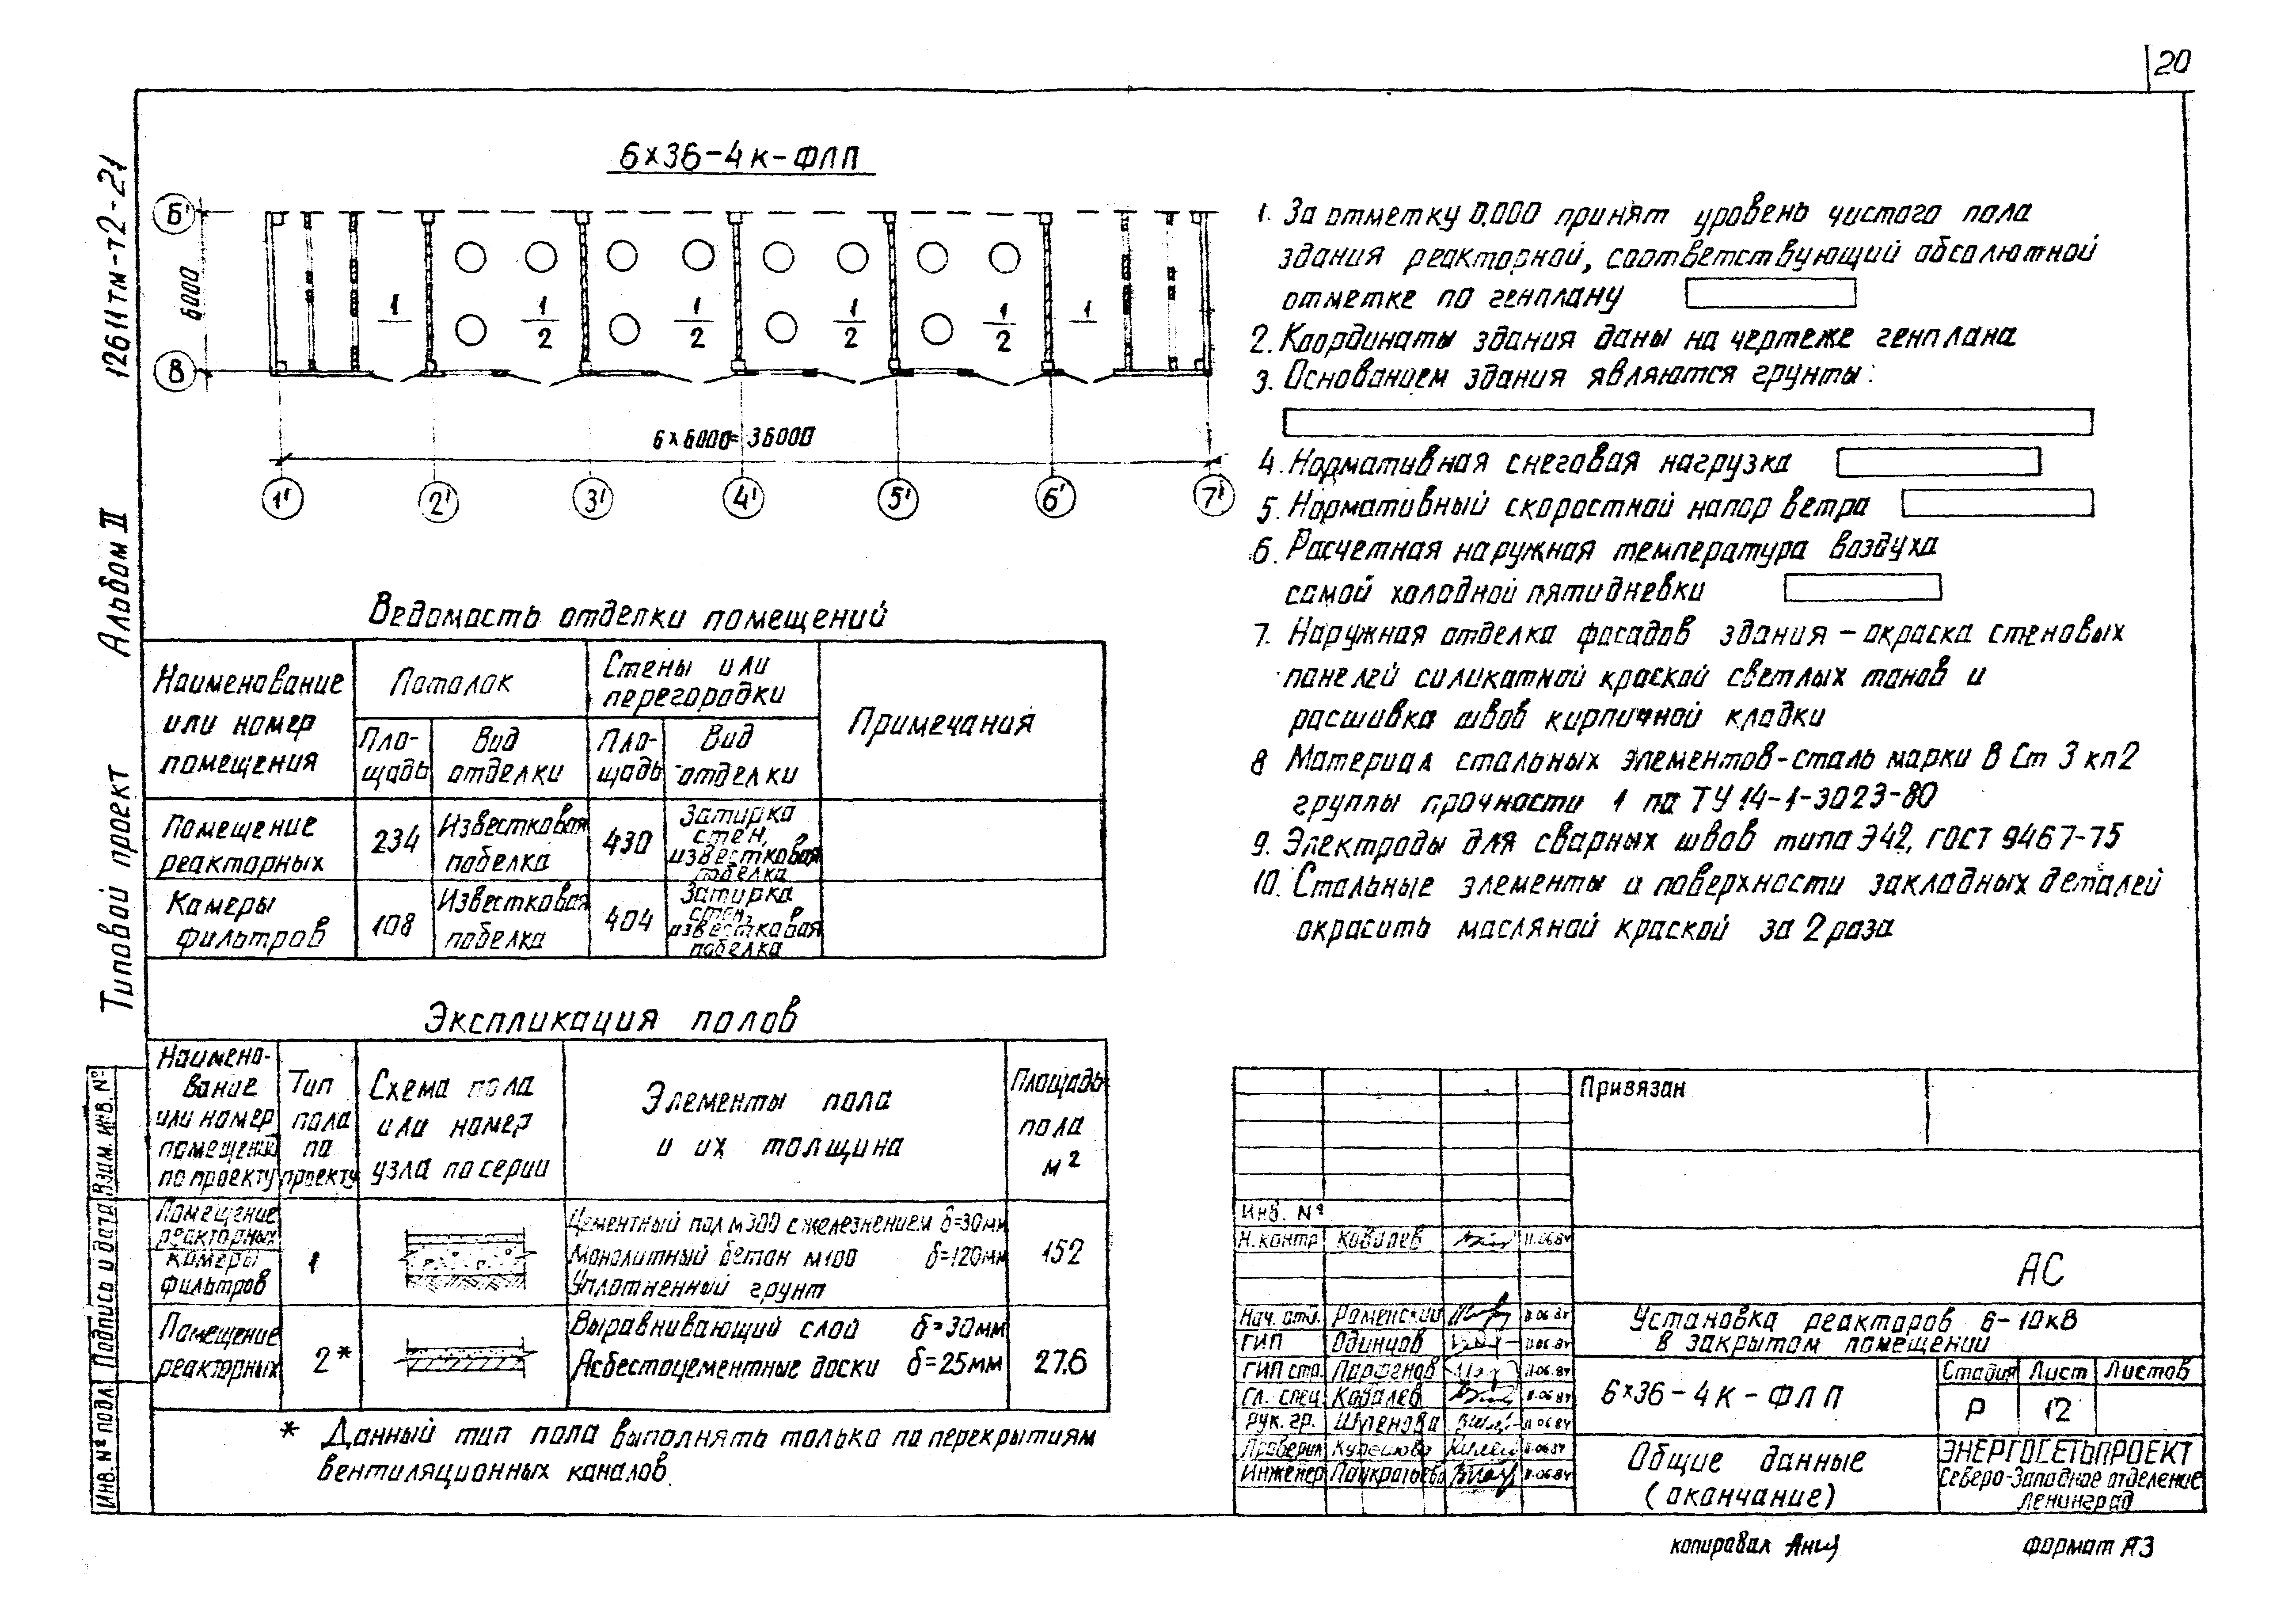 20
12611тм-т2-21
Альбом II
Типовой проект
6×36-4к-ФЛП
Б'
В
6000
1
1
2
1
2
1
2
1
2
1
6×6000=36000
1'
2'
3'
4'
5'
6'
7'
1. За отметку 0,000 принят уровень чистого пола
здания реакторной, соответствующий абсолютной
отметке по генплану
2. Координаты здания даны на чертеже генплана
3. Основанием здания являются грунты:
4. Нормативная снеговая нагрузка
5. Нормативный скоростной напор ветра
6. Расчетная наружная температура воздуха
самой холодной пятидневки
7. Наружная отделка фасадов здания – окраска стеновых
панелей силикатной краской светлых тонов и
расшивка швов кирпичной кладки
8 Материал стальных элементов-сталь марки В Ст 3 кп2
группы прочности 1 по ТУ 14-1-3023-80
9. Электроды для сварных швов типа Э42, ГОСТ 9467-75
10. Стальные элементы и поверхности закладных деталей
окрасить масляной краской за 2 раза
Ведомость отделки помещений
Наименование
или номер
помещения
Потолок
Стены или
перегородки
Примечания
Пло-
щадь
Вид
отделки
Пло-
щадь
Вид
отделки
Помещение
реакторных
234
Известковая
побелка
430
Затирка
стен,
известковая
побелка
Камеры
фильтров
108
Известковая
побелка
404
Затирка
стен,
известковая
побелка
Экспликация полов
Наимено-
вание
или номер
помещений
по проекту
Тип
пола
по
проекту
Схема пола
или номер
узла по серии
Элементы пола
и их толщина
Площадь
пола
м²
Помещение
реакторных
камеры
фильтров
1
Цементный пол М300 с железнением δ=30мм
Монолитный бетон М100 δ=120мм
Уплотненный грунт
152
Помещение
реакторных
2*
Выравнивающий слой δ=30мм
Асбестоцементные доски δ=25мм
27.6
* Данный тип пола выполнять только по перекрытиям
вентиляционных каналов.
Взам. инв. №
Подпись и дата
Инв. № подл.
Привязан
Инв. №
Н.контр Ковалев 11.06.84
АС
Нач. отд. Роменский 11.06.84
ГИП Одинцов 11.06.84
ГИП стр. Парфенов 11.06.84
Гл. спец Ковалев 11.06.84
Рук. гр. Шленова 11.06.84
Проверил 11.06.84
Инженер Панкратьева 11.06.84
Установка реакторов 6-10кВ
в закрытом помещении
6×36-4к-ФЛП
Стадия Лист Листов
Р 12
Общие данные
(окончание)
ЭНЕРГОСЕТЬПРОЕКТ
Северо-Западное отделение
Ленинград
копировал
формат А3